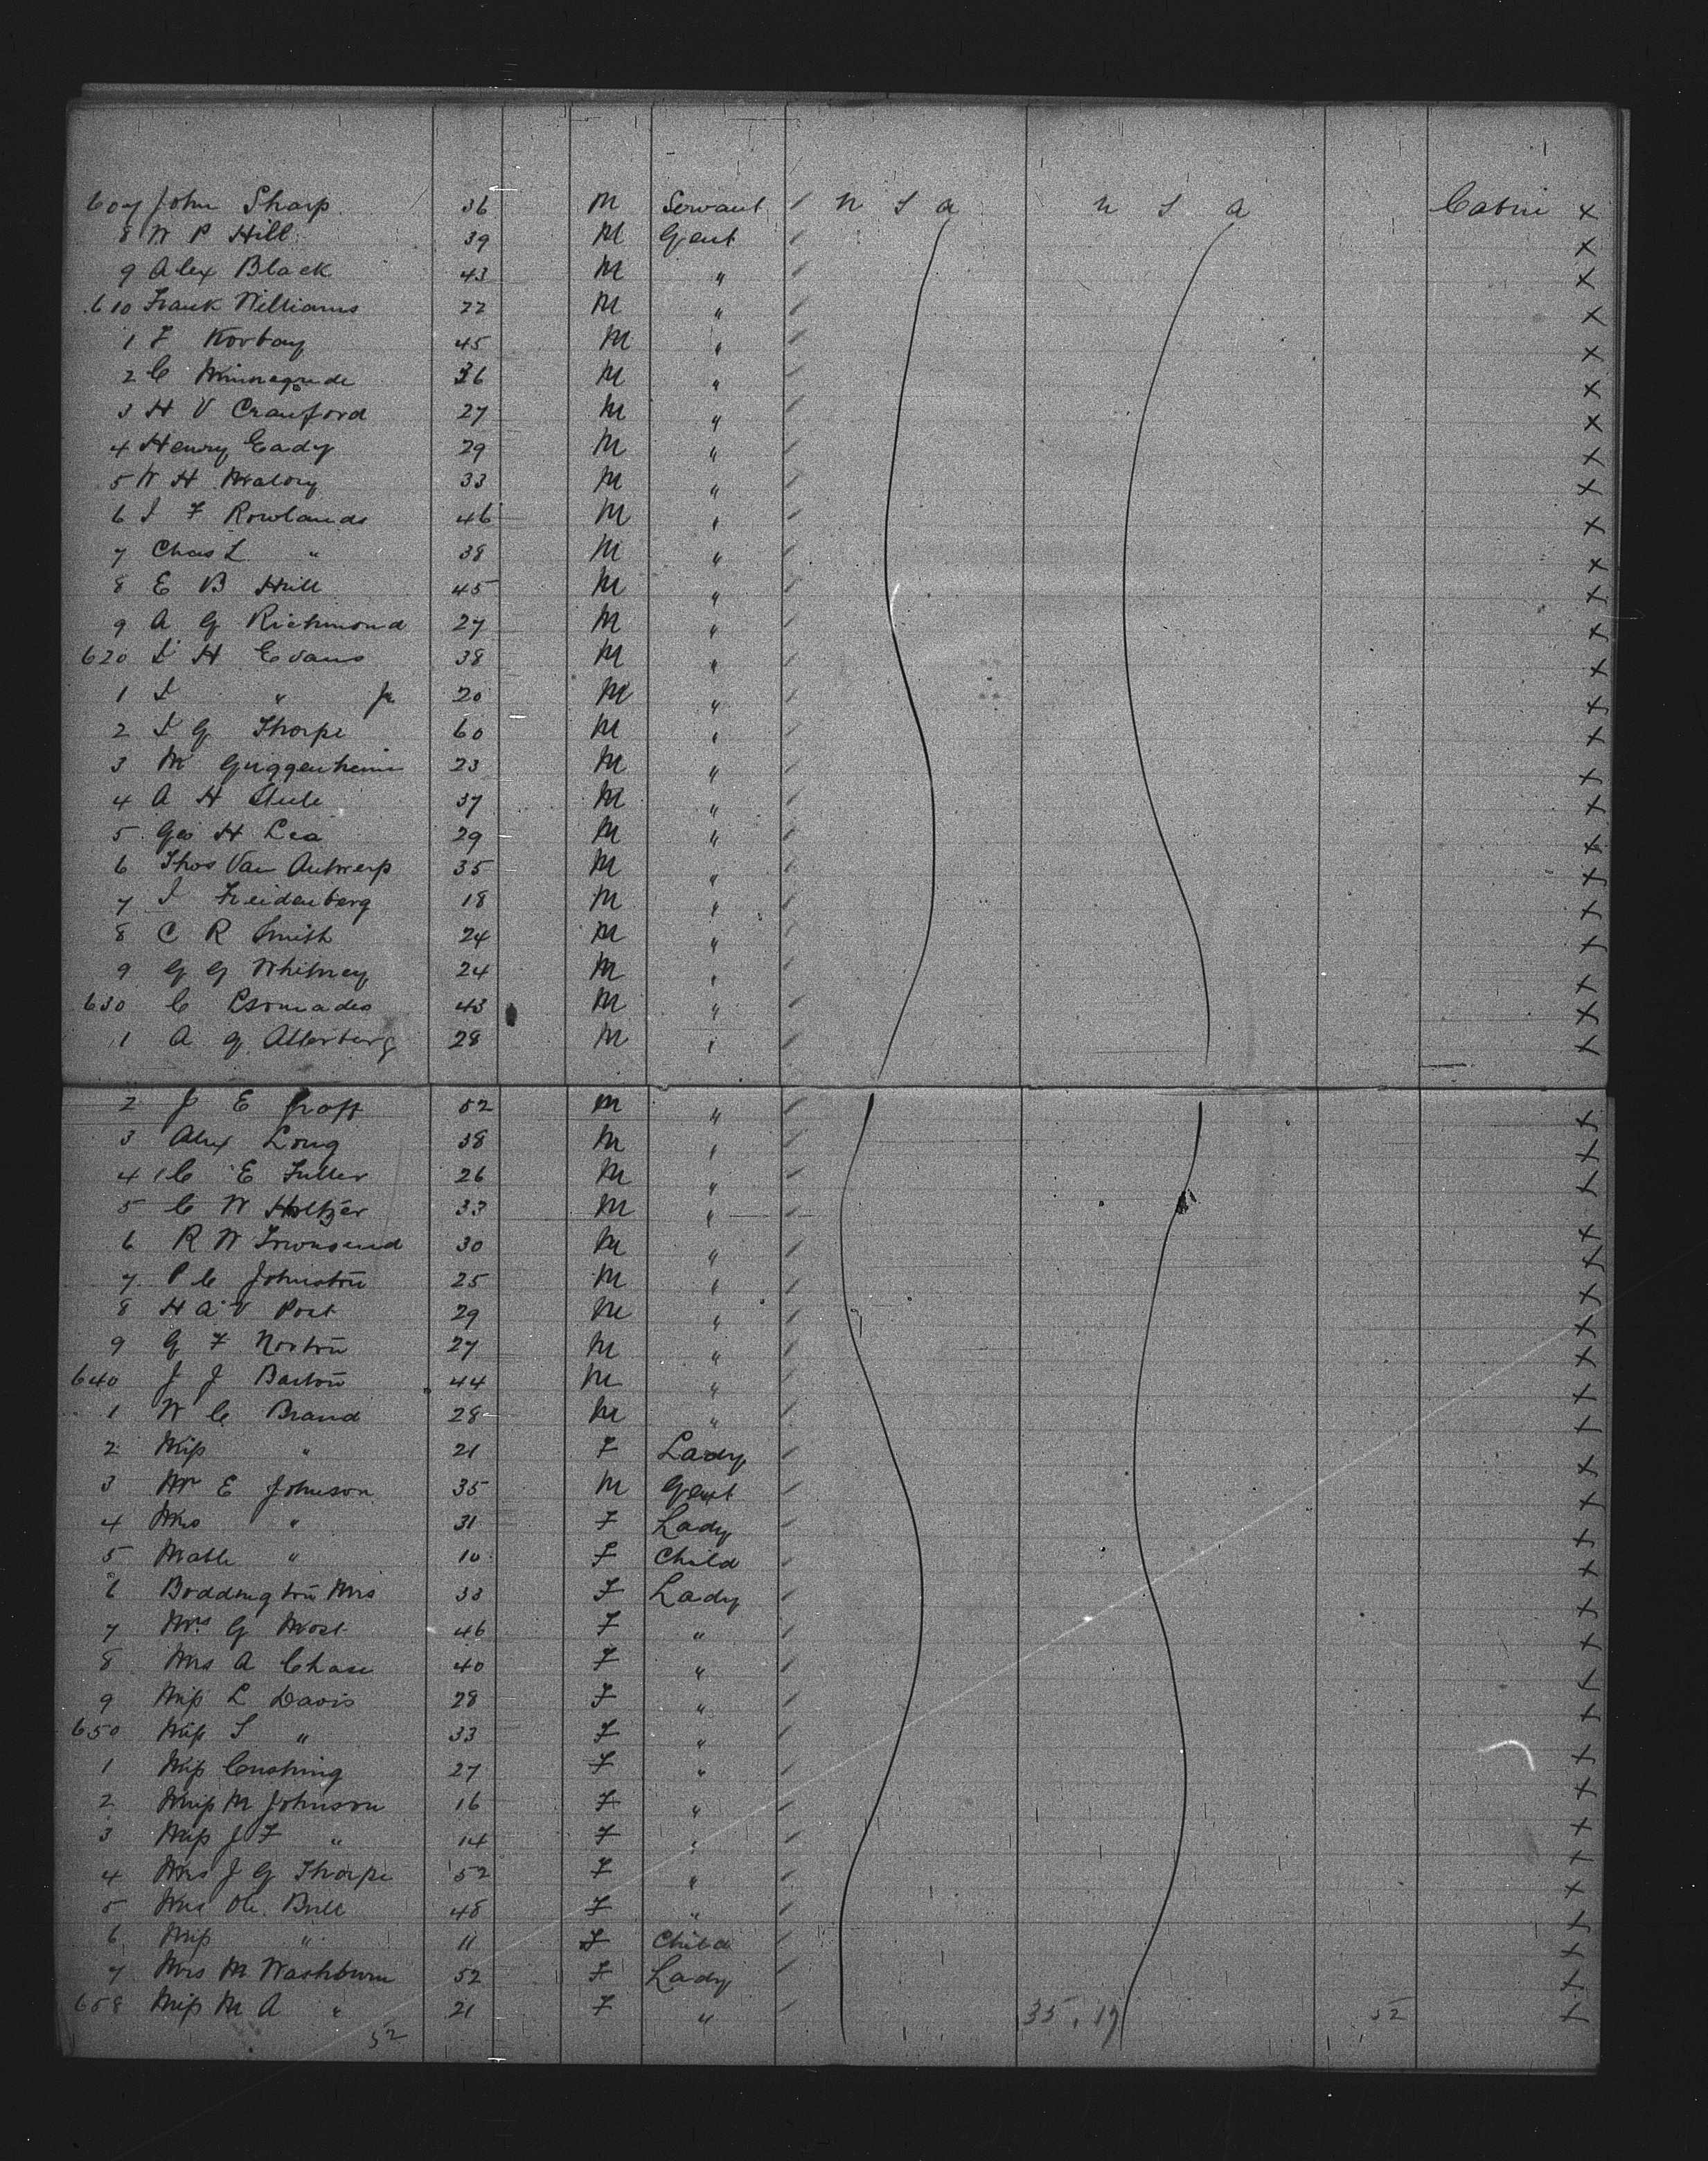 607 John Sharp 36 M Servant U S A U S A Cabin x
8 W P Hill 39 M Gent x
9 Alex Black 43 M " x
610 Frank Williams 22 M " x
1 F Korbay 45 M " x
2 C 36 M " x
3 H V Crawford 27 M " x
4 Henry Eady 29 M " x
5 W H Malory 33 M " x
6 J F Rowlands 46 M " x
7 Chas L " 38 M " x
8 E B Hill 45 M " x
9 A G Richmond 27 M " x
620 D H Evans 38 M " x
1 D " Jr 20 M " x
2 J G Thorpe 60 M " x
3 M Guggenheim 23 M " x
4 A H 37 M " x
5 Geo H Lea 29 M " x
6 Thos Van Antwerp 35 M " x
7 J Freidenberg 18 M " x
8 C R Smith 24 M " x
9 G G Whitney 24 M " x
630 C Psomades 43 M " x
1 A G Atterbury 28 M " x
2 J E 52 M " x
3 Alex Long 38 M " x
4 C E Fuller 26 M " x
5 C W Holtzer 33 M " x
6 R W Townsend 30 M " x
7 P C Johnston 25 M " x
8 H A V Post 29 M " x
9 G F Norton 27 M " x
640 J J Barton 44 M " x
1 W C Brand 28 M " x
2 Miss " 21 F Lady x
3 Mr E Johnson 35 M Gent x
4 Mrs " 31 F Lady x
5 Mable " 10 F Child x
6 Boddington Mrs 33 F Lady x
7 Mrs G Most 46 F " x
8 Mrs A Chase 40 F " x
9 Miss L Davis 28 F " x
650 Miss S " 33 F " x
1 Miss Cushing 27 F " x
2 Miss M Johnson 16 F " x
3 Miss J F " 14 F " x
4 Mrs J G Thorpe 52 F " x
5 Mrs Ole Bull 48 F " x
6 Miss " 11 F Child x
7 Mrs M Washburn 52 F Lady x
658 Miss M A " 21 F " 35 . 17 52 x
52